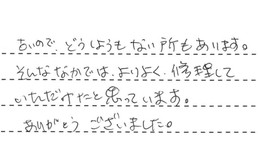 古いので、どうしようもない所もあります。
そんななかでは、よりよく修理して
いただけたと思っています。
ありがとうございました。